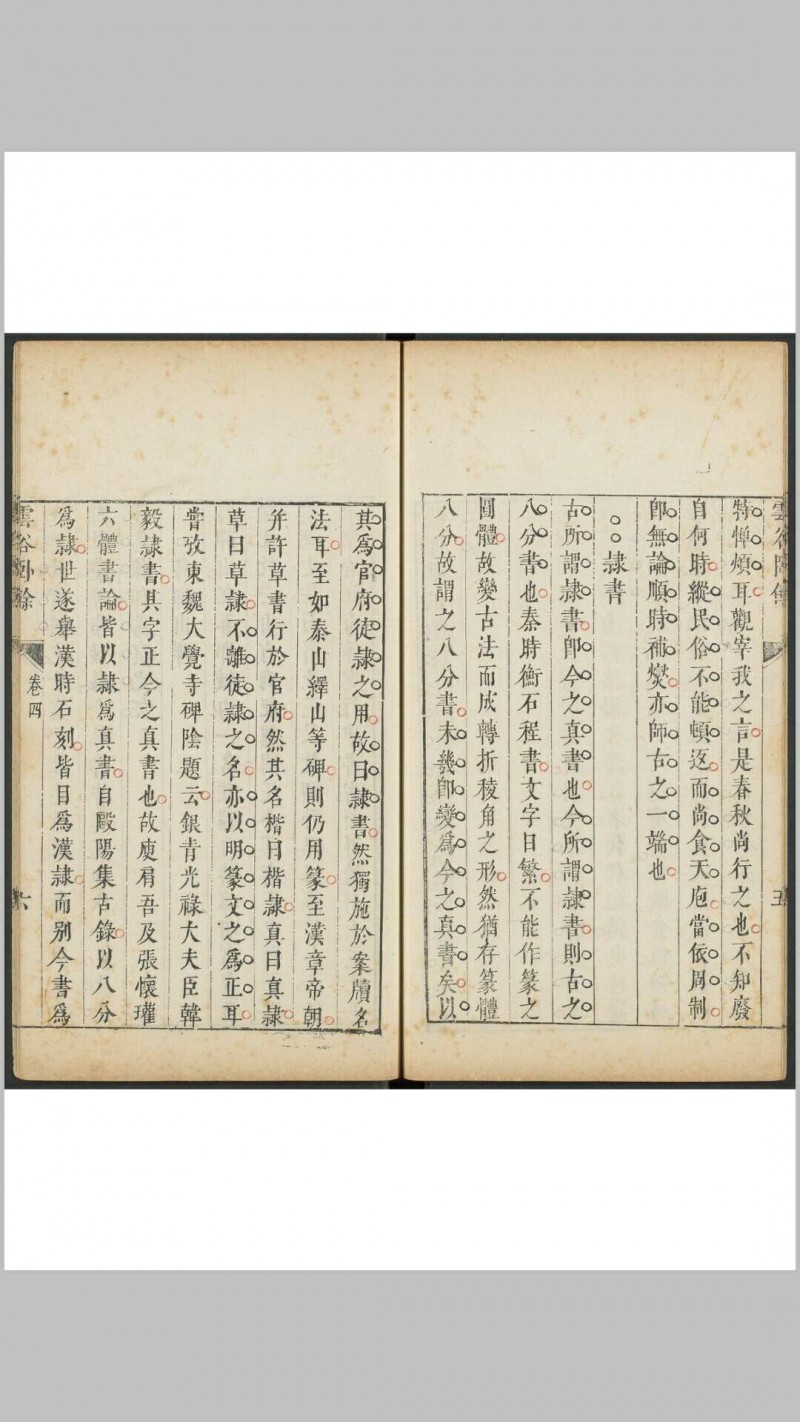 特憚煩耳觀宰我之言是春秋尚行之也不知廢
自何時縱民俗不能頓返而尚食天庖當依周制
卽無論順時補爕亦師古之一端也
隸書
古所謂隸書卽今之真書也今所謂隸書則古之
八分書也秦時衡石程書文字日繁不能作篆之
圓體故變古法而成轉折稜角之形然猶存篆體
八分故謂之八分書未幾卽變爲今之真書矣以
其爲官府徒隸之用故曰隸書然獨施於案牘名
法耳至如泰山繹山等碑則仍用篆至漢章帝朝
并許草書行於官府然其名楷曰楷隸真曰真隸
草曰草隸不離徒隸之名亦以明篆文之爲正耳
嘗攷東魏大覺寺碑陰題云銀青光祿大夫臣韓
毅隸書其字正今之真書也故庾肩吾及張懷瓘
六體書論皆以隸爲真書自歐陽集古錄以八分
爲隸世遂舉漢時石刻皆目爲漢隸而別今書爲
雲谷臥餘
卷四
六